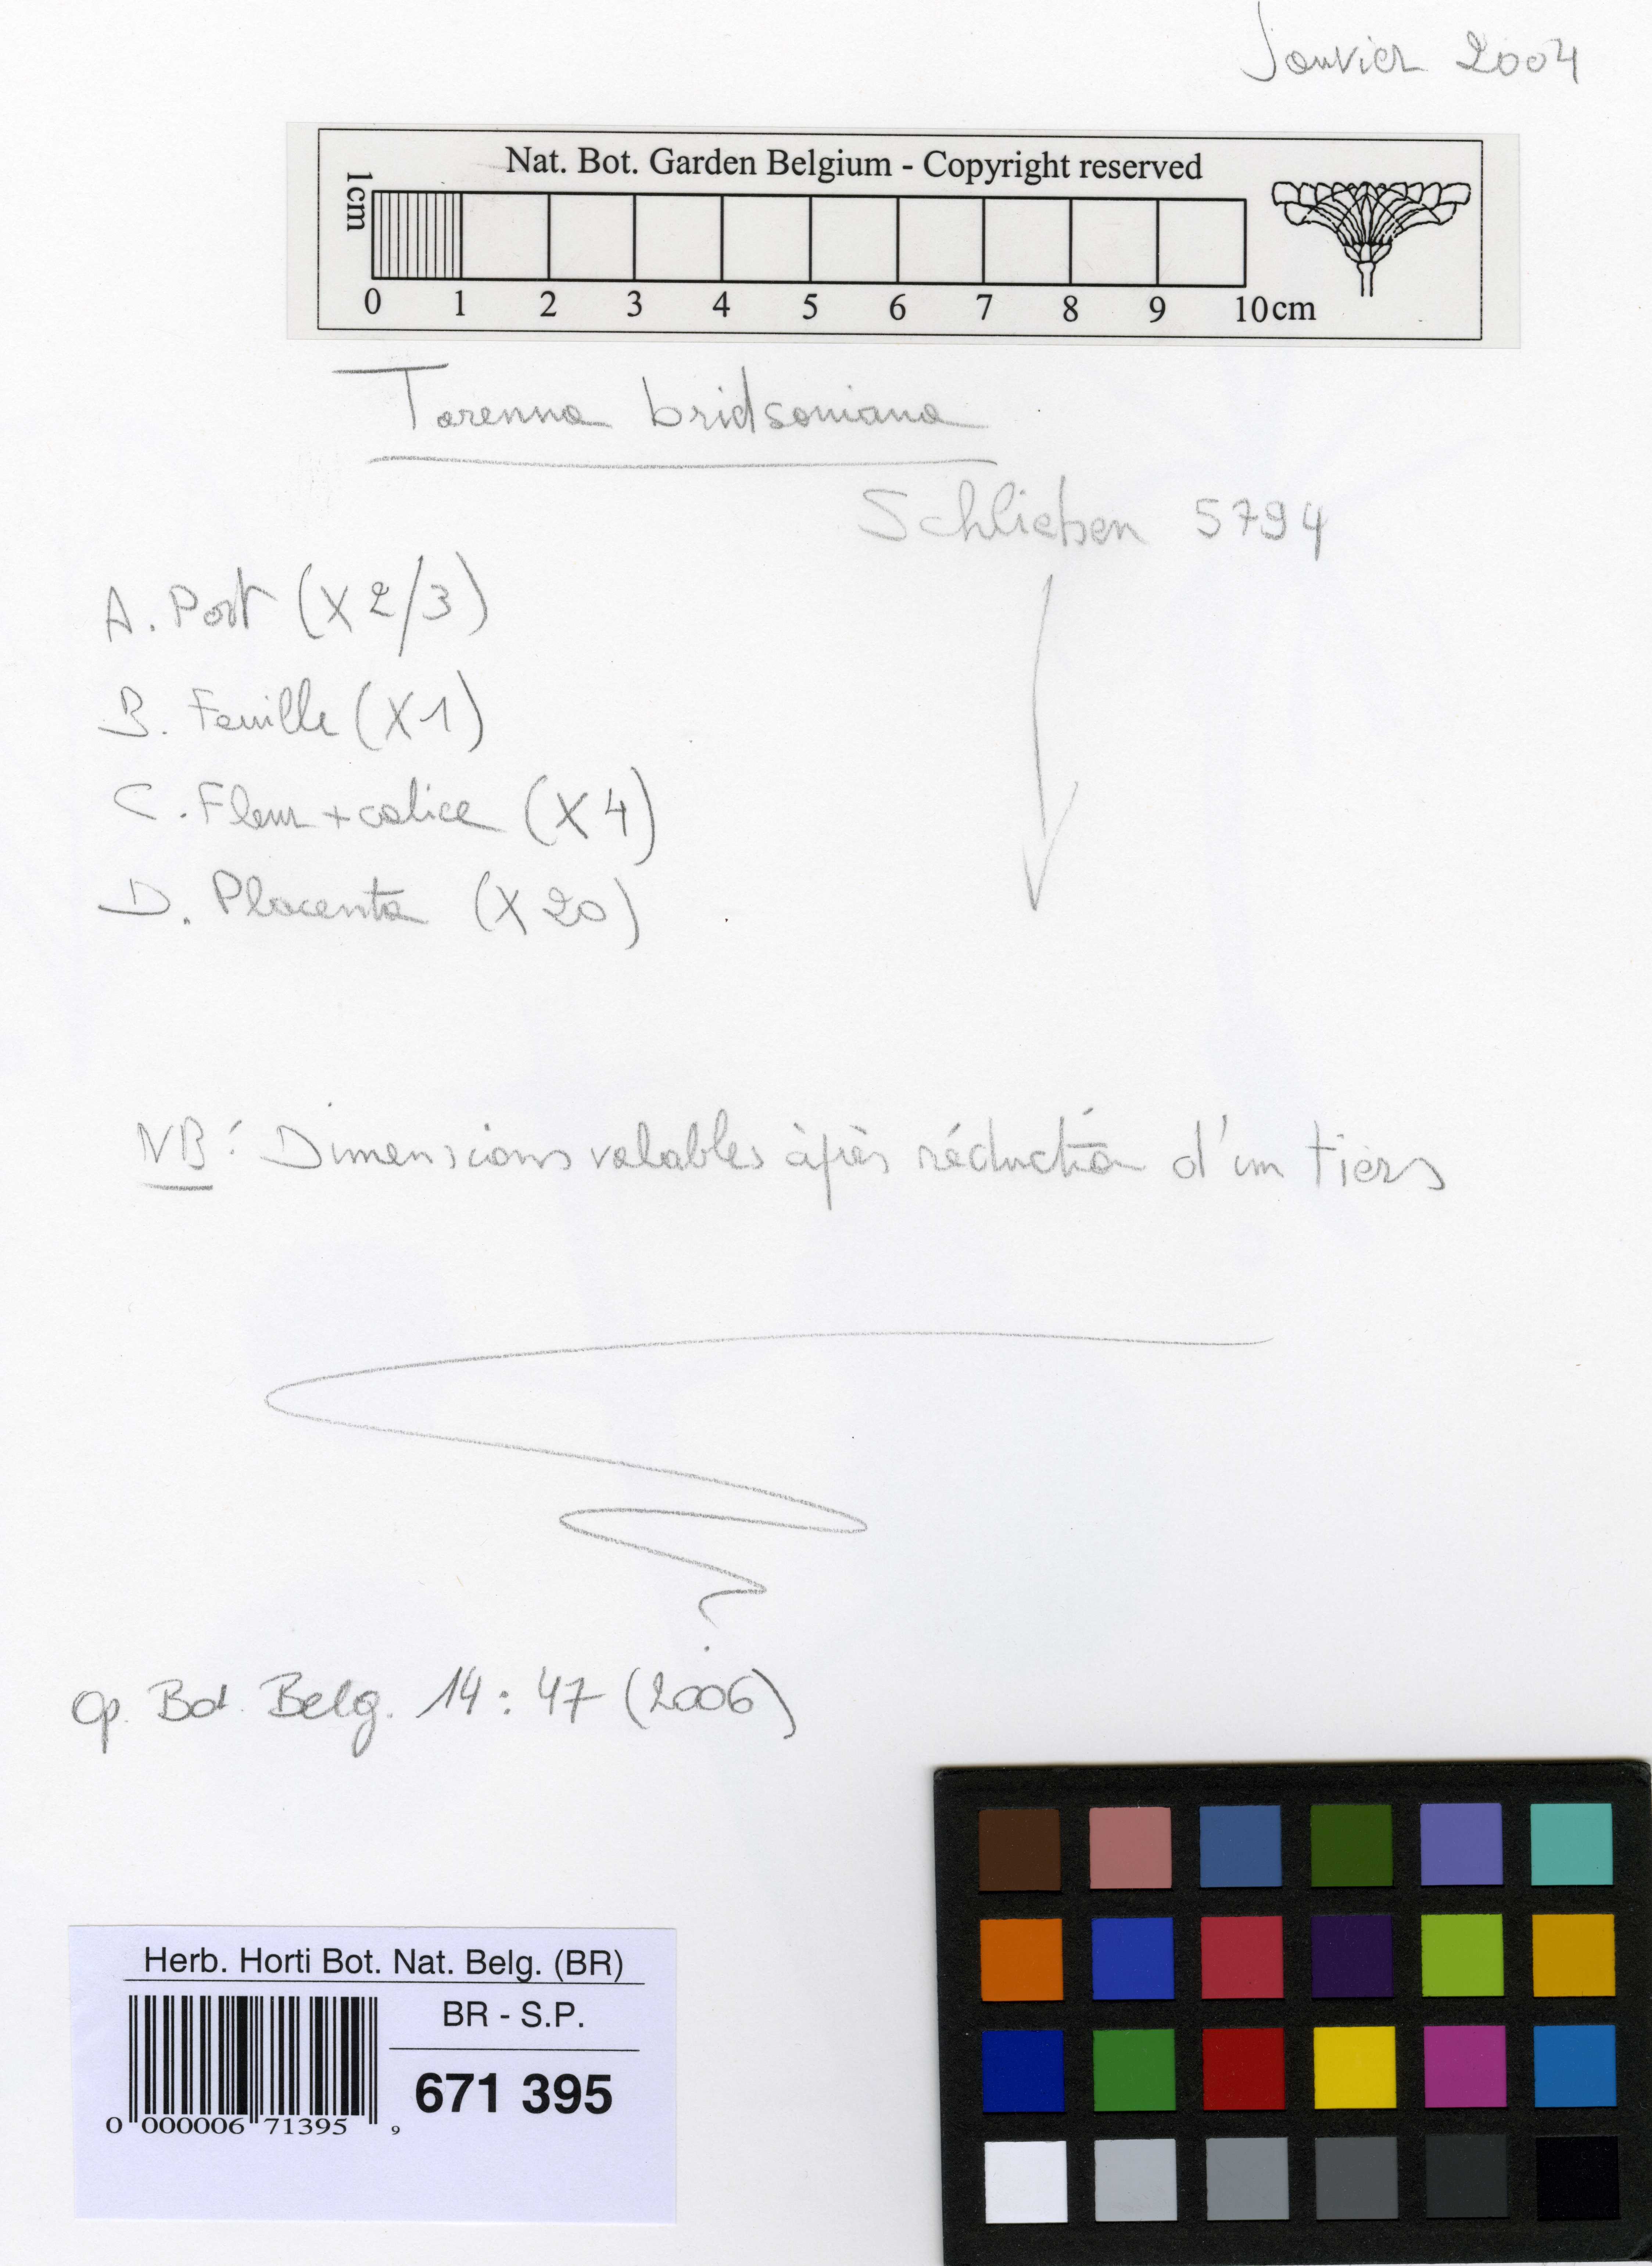 Janvier 2004
Nat. Bot. Garden Belgium - Copyright reserved
1cm
0 1 2 3 4 5 6 7 8 9 10cm
Tarenna bridsoniana
Schlieben 5794
A. Port (X 2/3)
B. Feuille (X1)
C. Fleur + calice (X4)
D. Placenta (X20)
NB: Dimensions valables àprès réduction d'un tiers
Op. Bot. Belg. 14 : 47 (2006)
Herb. Horti Bot. Nat. Belg. (BR)
BR - S.P.
671 395
0 000006 71395 9